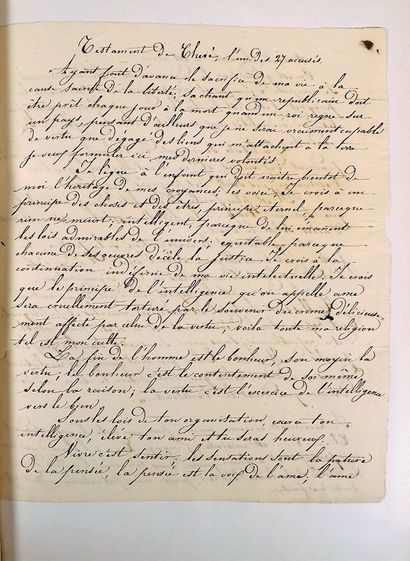 Testament de Thoré, l'un des 27 accusés.
Ayant fait d'avance le sacrifice de ma vie à la
cause sainte de la liberté, sachant qu'un républicain doit
être prêt chaque jour à la mort, quand un roi règne sur
un pays, pensant d'ailleurs que je ne serai vraiment capable
de vertu que dégagé des liens qui m'attachent à la terre
je veux formuler ici mes dernières volontés.
Je lègue à l'enfant qui doit naître bientôt de
moi l'héritage de mes croyances, les voici: Je crois à un
principe des choses et des êtres, principe éternel, parceque
rien ne meurt; intelligent, parceque de lui émanent
les lois admirables de l'univers; équitable, parceque
chacune de ses œuvres décèle la justice. Je crois à la
continuation indéfinie de ma vie intellectuelle. Je crois
que le principe de l'intelligence qu'on appelle âme
sera cruellement torturé par le souvenir du crime, délicieuse-
ment affecté par celui de la vertu; voilà toute ma religion
tel est mon culte.
La fin de l'homme est le bonheur, son moyen la
vertu; le bonheur c'est le contentement de soi même
selon la raison; la vertu c'est l'exercice de l'intelligence
vers le bien.
Sous les lois de ton organisation, exerce ton
intelligence, élève ton âme et tu seras heureux.
Vivre c'est sentir, les sensations sont la pâture
de la pensée, la pensée est la voix de l'âme, l'âme